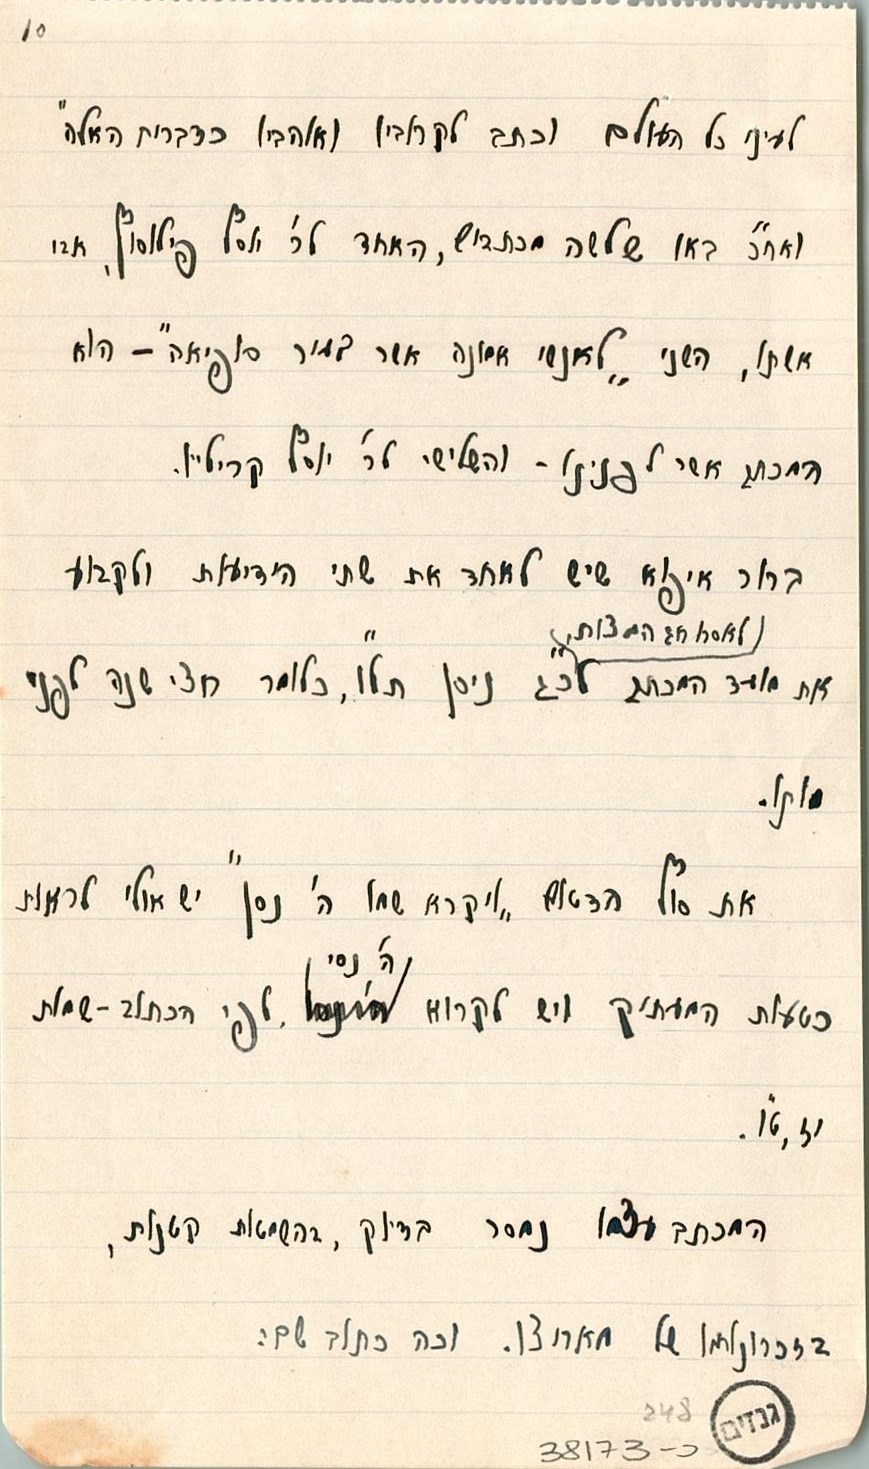 10
לעיני כל העולם וכתב לקרוביו ואוהביו כדברים האלה"
ואח"כ באו שלשה מכתבים, האחד לר' יוסף פילוסוף, אבי
אשתו, השני „לאנשי אמונה אשר בעיר סופיאה" – הוא
המכתב אשר לפנינו – והשלישי לר' יוסף קרילייו.
ברור איפוא שיש לאחד את שתי הידיעות ולקבוע
(לאסרו חג המצות)
את מועד המכתב לכ"ג ניסן תל"ו, כלומר חצי שנה לפני
מותו.
את סוף הדטום „ויקרא שמו ה' נסן" יש אולי לראות
ה' נסי
כטעות המעתיק ויש לקרוא לפי הכתוב – שמות
יז, ט"ו.
המכתב עצמו נמסר בדיוק, בהשמטות קטנות,
בזכרונותיו של מארוצו. וכה כתוב שם:
גנזים
248
כ–38173